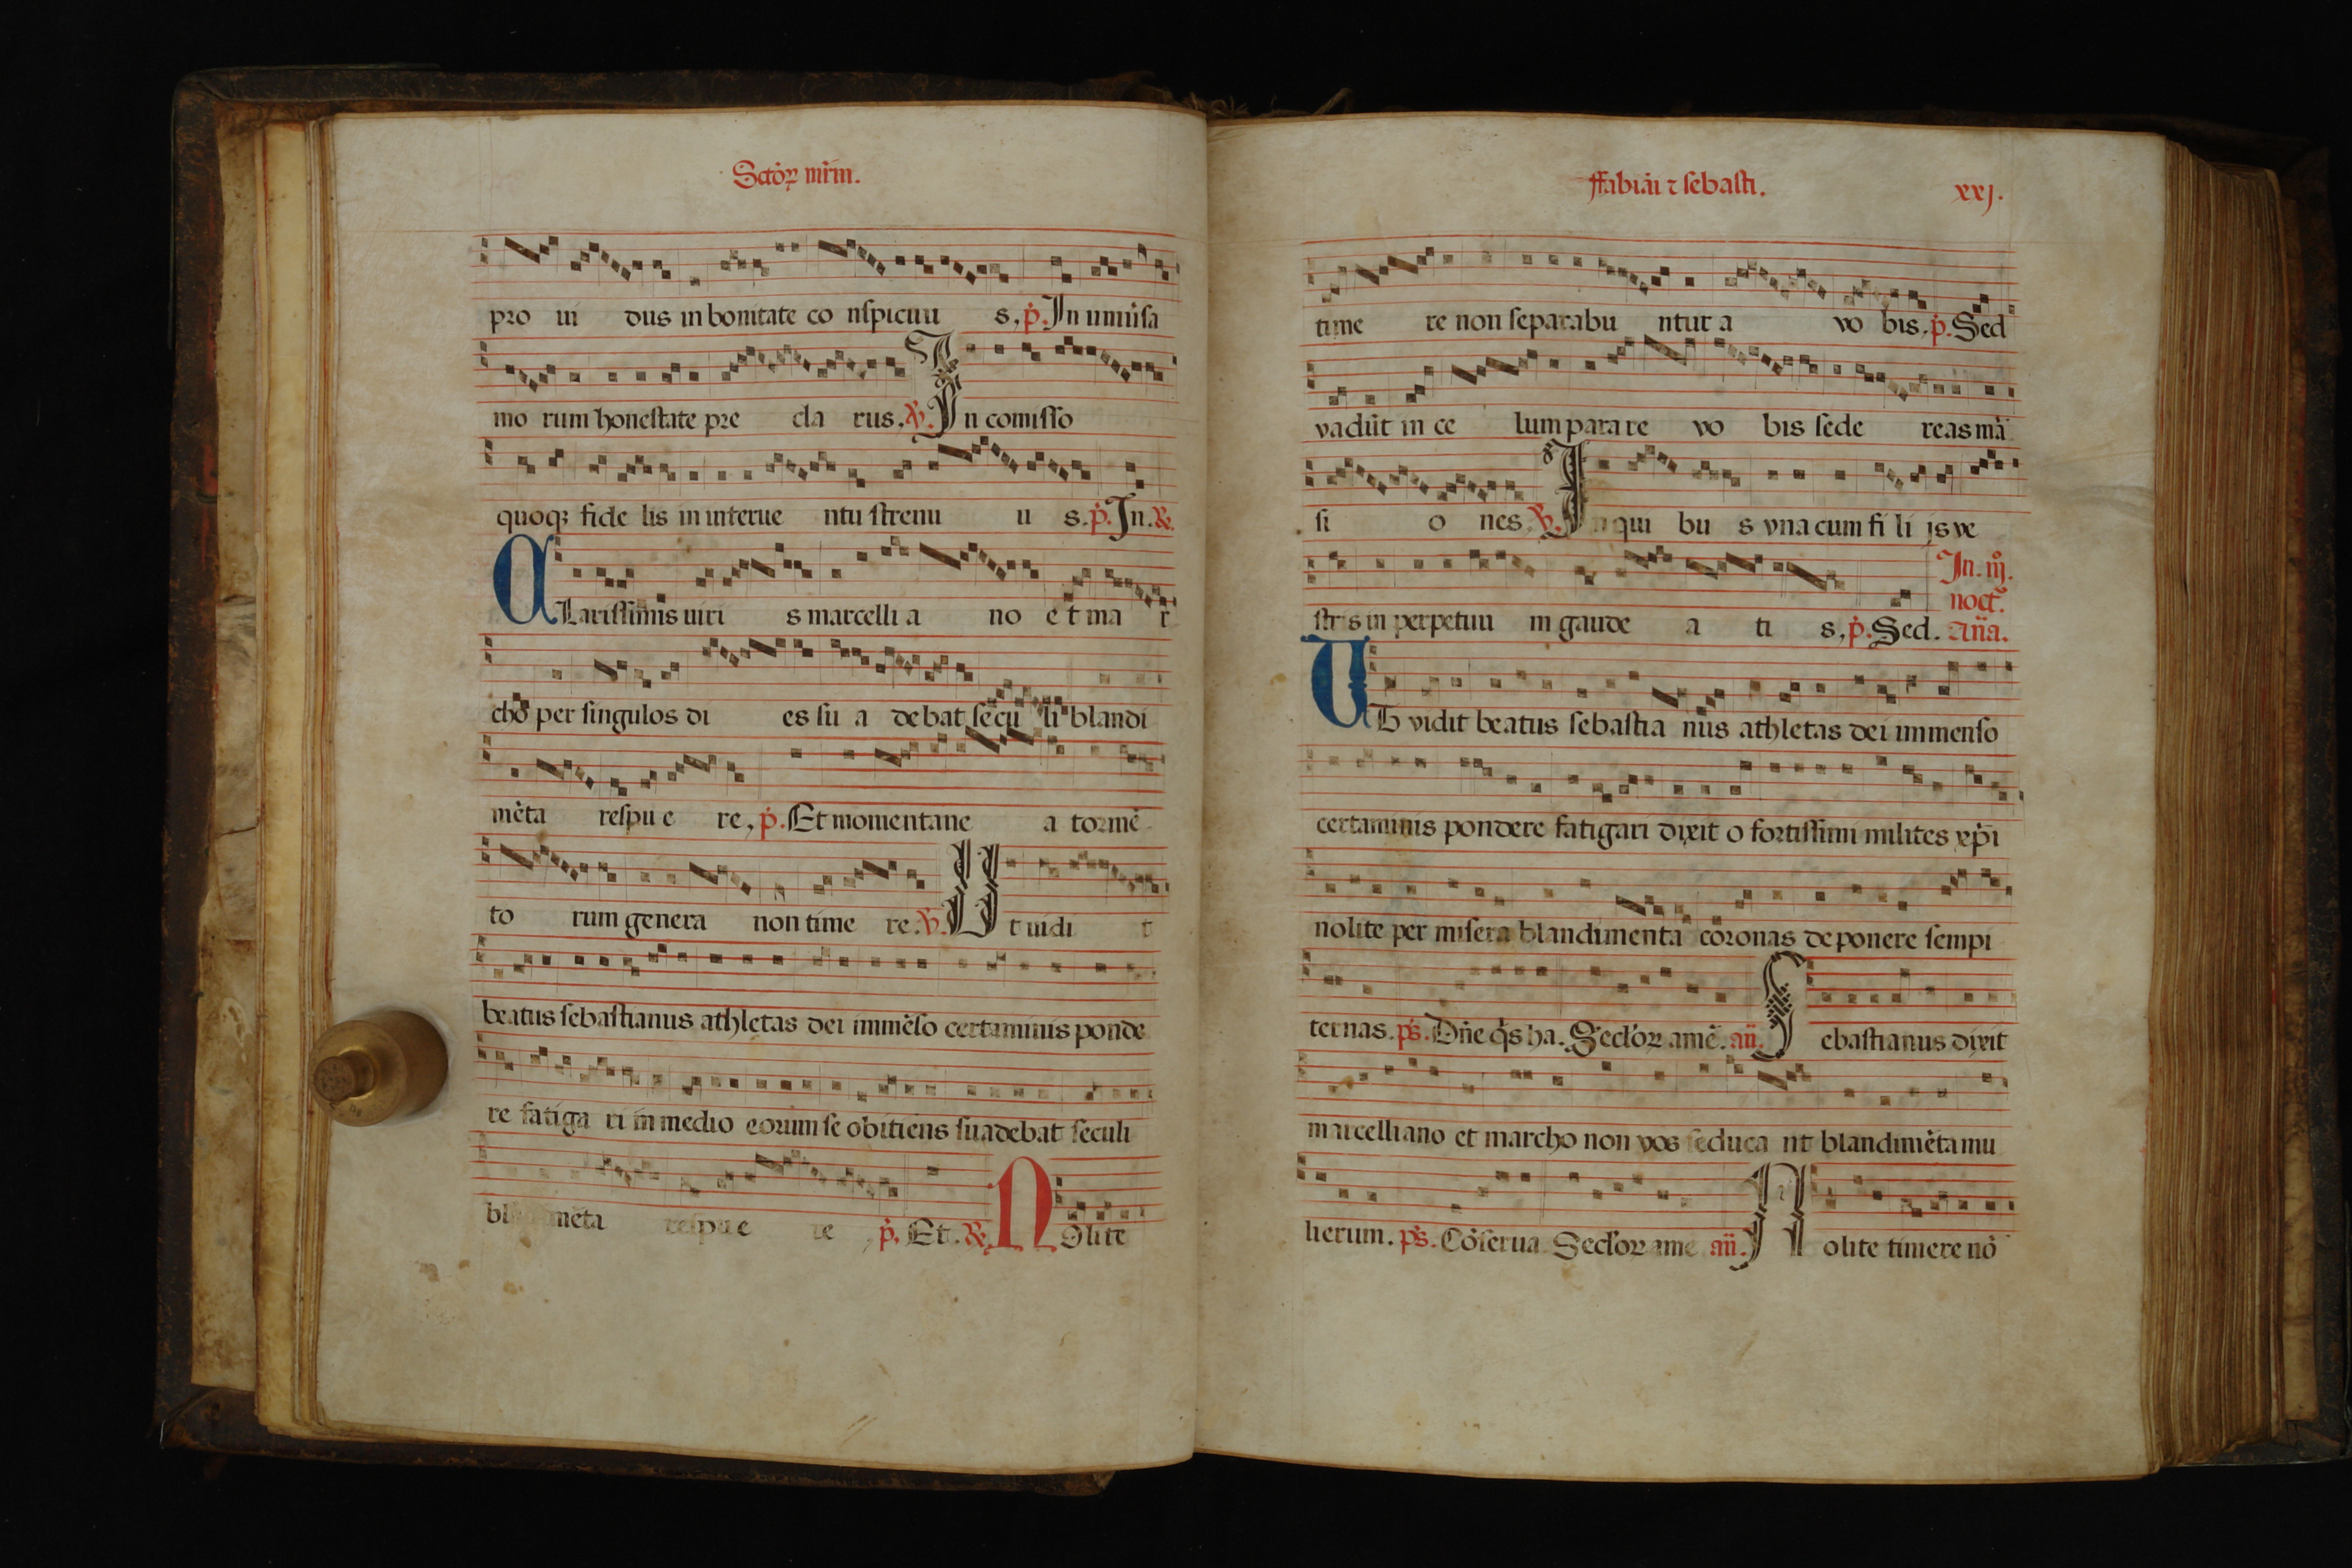 Sctõꝝ mr̃m.
pro ui dus in bonitate co nspicuu s, p̃. In uniũsa
mo rum honestate pre cla rus. ꝟ. In comisso
quoqꝫ fide lis in interue ntu strenu u s. p̃. In. ℟.
Clarissimis uiri s marcelli a no et ma r
cho per singulos di es su a debat secu li blandi
mẽta respu e re, p̃. Et momentane a tormẽ
to rum genera non time re. ꝟ. Ut uidi t
beatus sebastianus athletas dei immẽso certaminis ponde
re fatiga ri in medio eorum se obitiens suadebat seculi
mẽta respu e re p̃. Et. ℟. Nolite
ffabiãi ⁊ sebasti. xxj.
time re non separabu ntur a vo bis. p̃. Sed
vadũt in ce lum parare vo bis sede reas mã
si o nes. ꝟ. In qui bu s vna cum fi li js ve
In. iij̊. noct̃.
stris in perpetuu m gaude a ti s, p̃. Sed. añа.
Ut vidit beatus sebastia nus athletas dei immenso
certaminis pondere fatigari dixit o fortissimi milites xp̃i
nolite per misera blandimenta coronas deponere sempi
ternas. p̃s. Dñe q̃s ha. Sect̃oꝝ amẽ. añ. Sebastianus dixit
marcelliano et marcho non vos seduca nt blandimẽta mu
lierum. p̃s. Cõserua Sect̃oꝝ ame añ. Nolite timere nõ